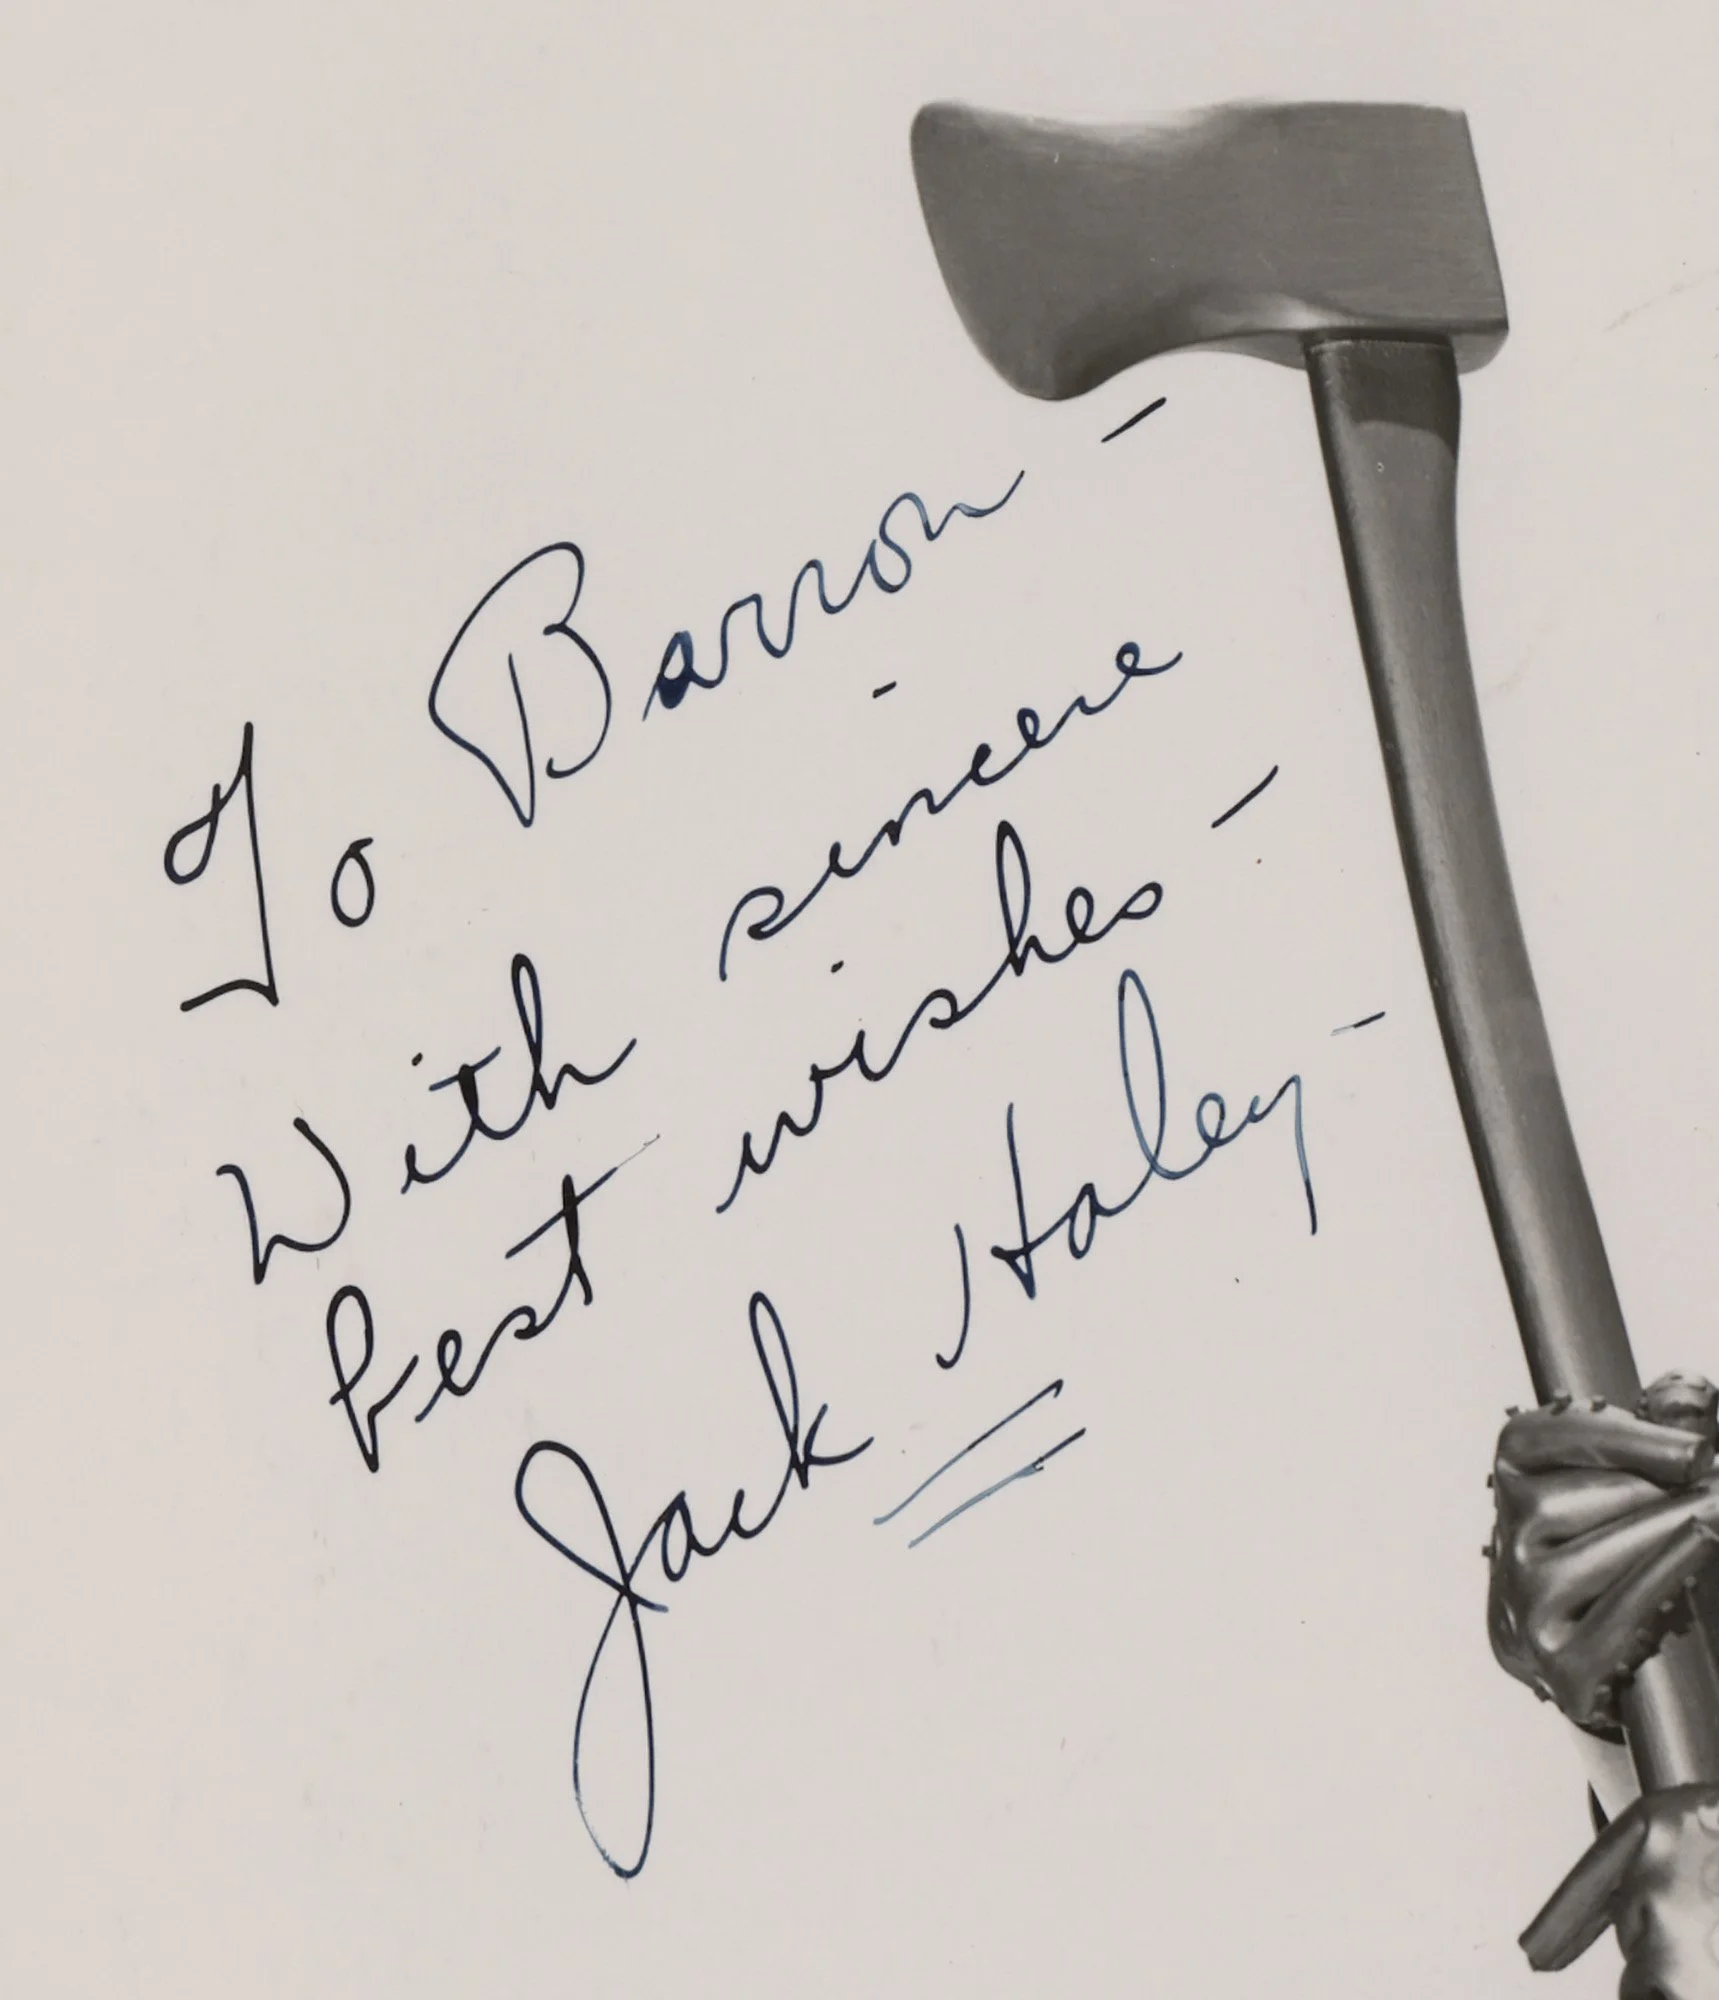 To Barron -
With sincere
best wishes -
Jack Haley -